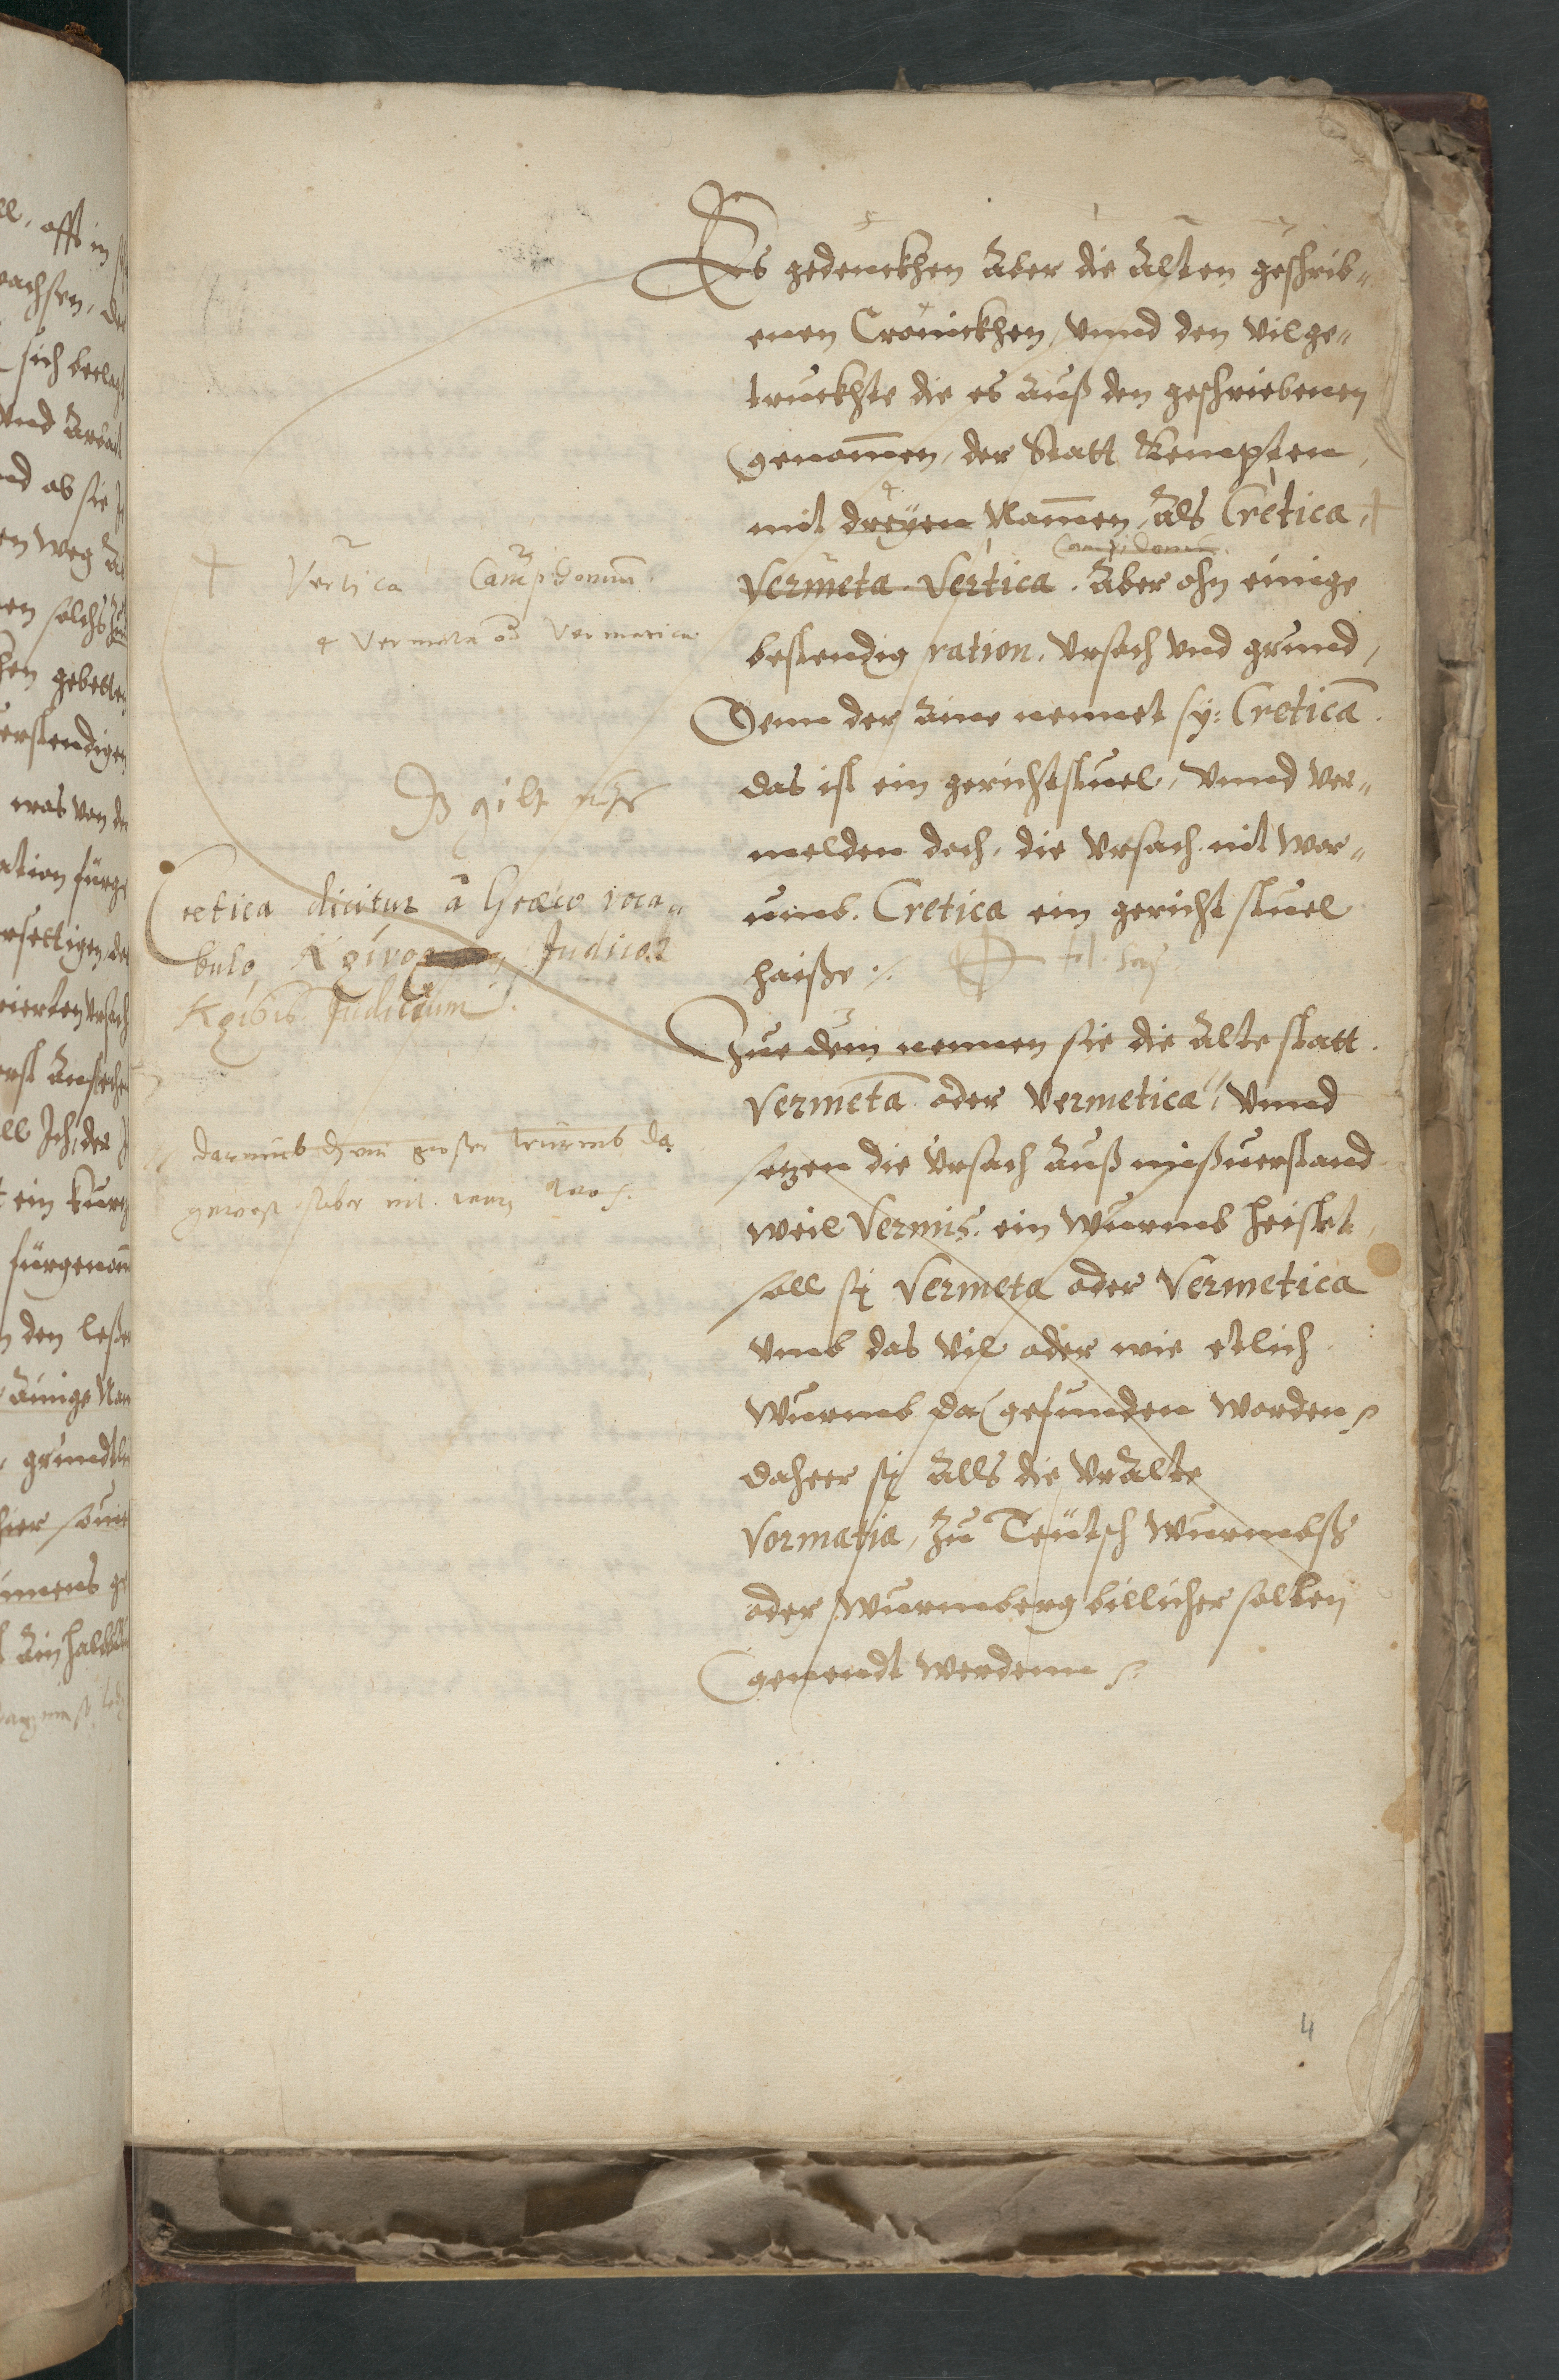 Es gedenckhen aber die alten geschrib„
enen Cronickhen, vnnd den vilge„
truckhte die es auß den geschriebenen
genom̄en, der Statt Kempten,
mit dreyen Nam̄en, als Cretica,
Campidonum.
Vermeta. Vertica. aber ohn einige
bestendig ration. Vrsach vnd grund,
Denn der aine nennet sy: Creticā.
das ist ein gerichtstuel, vnnd ver„
melden doch, die vrsach nit war„
umb. Cretica ein gericht stuel
haiße
Zue dem nennen sie die alte statt.
Vermetā oder Vermetica, vnnd
setzen die Vrsach auß mißuerstand
weil Vermis. ein wurmb heisset,
soll sy Vermeta oder Vermetica
vmb das vil oder wie etlich
wurmb da gefunden worden
daheer sy alls die vralte
Vormatia, zu Teütsch wurmbß
oder wurmberg billicher solten
genendt werdenn
Vertica Campidonum
4 Vermeta od Vermetica
Iß gilt nichts
Cretica dicitur à Graeco voca„
bulo, Judico.
Judicium.
darumb ein groser wurmb da
gewest aber nit
4